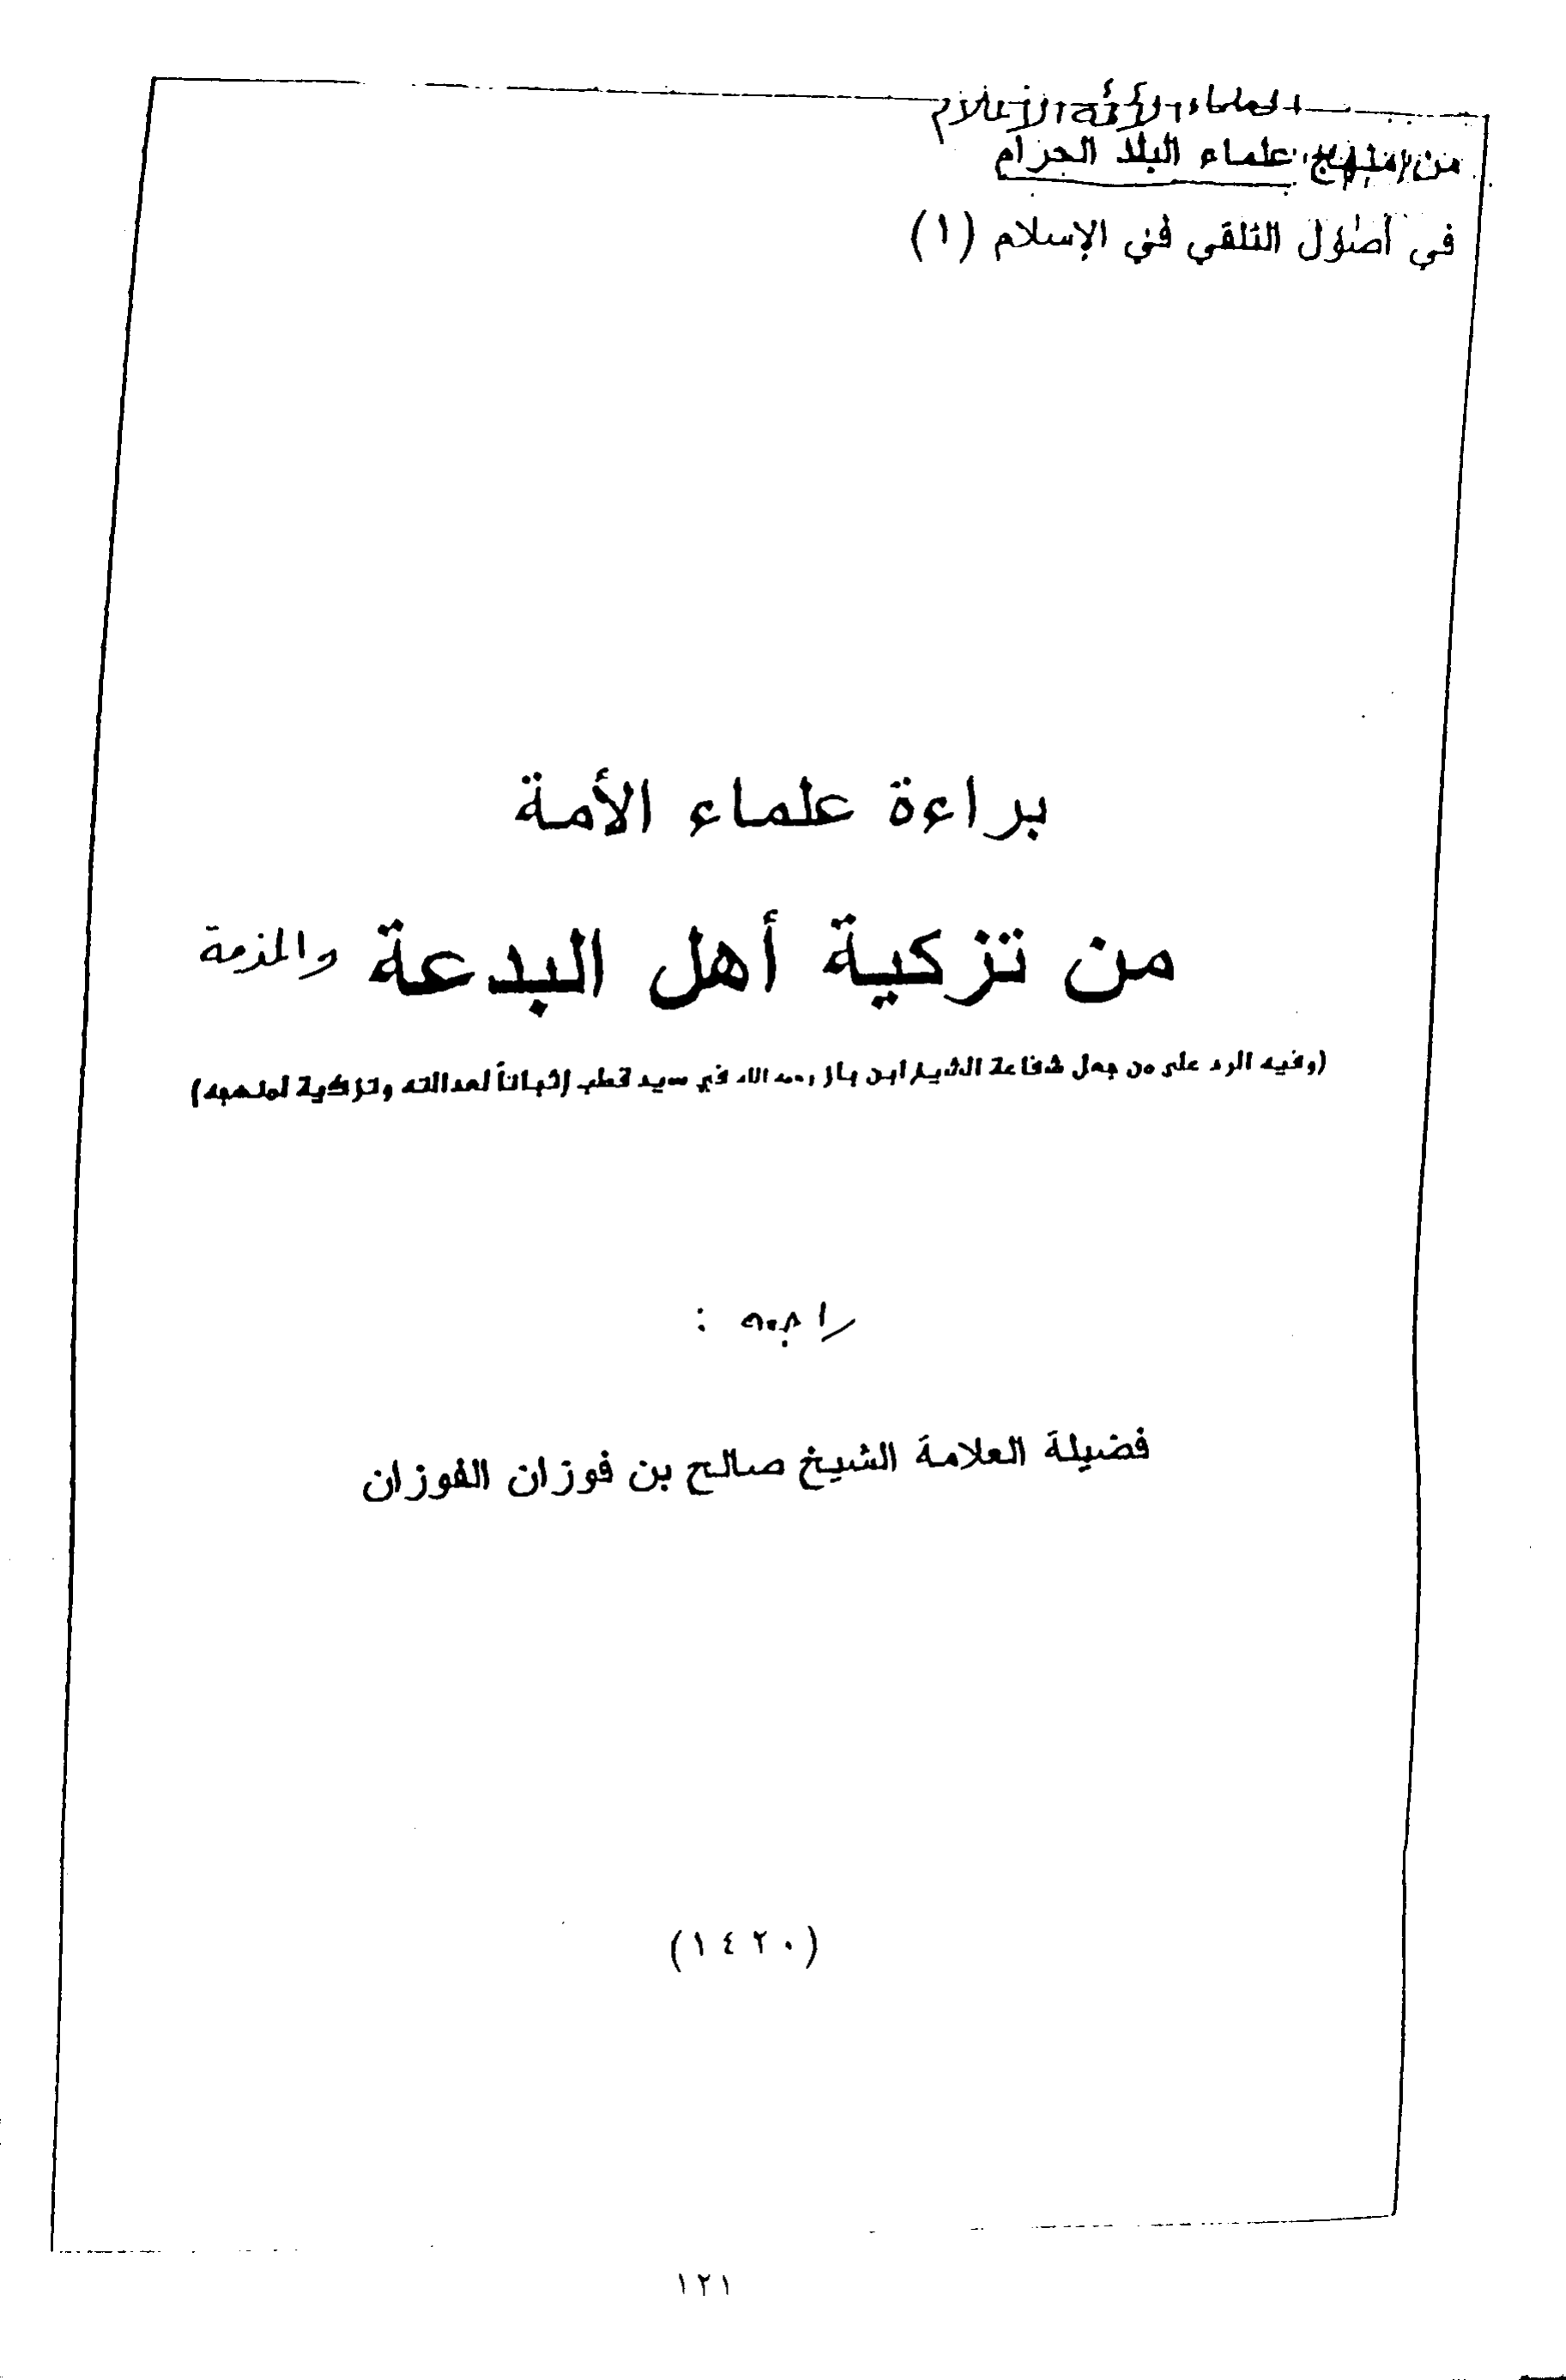 العلماء الأئمة الأعلام
من منهج علماء البلد الحرام
في أصول التلقي في الإسلام (١)
براءة علماء الأمة
من تزكية أهل البدعة والمذمة
(وفيه الرد على من جعل شفاعة الشيخ ابن باز رحمه الله في سيد قطب إثباتاً لعدالته وتزكية لمنهجه)
راجعه :
فضيلة العلامة الشيخ صالح بن فوزان الفوزان
(١٤٢٠)
١٢١